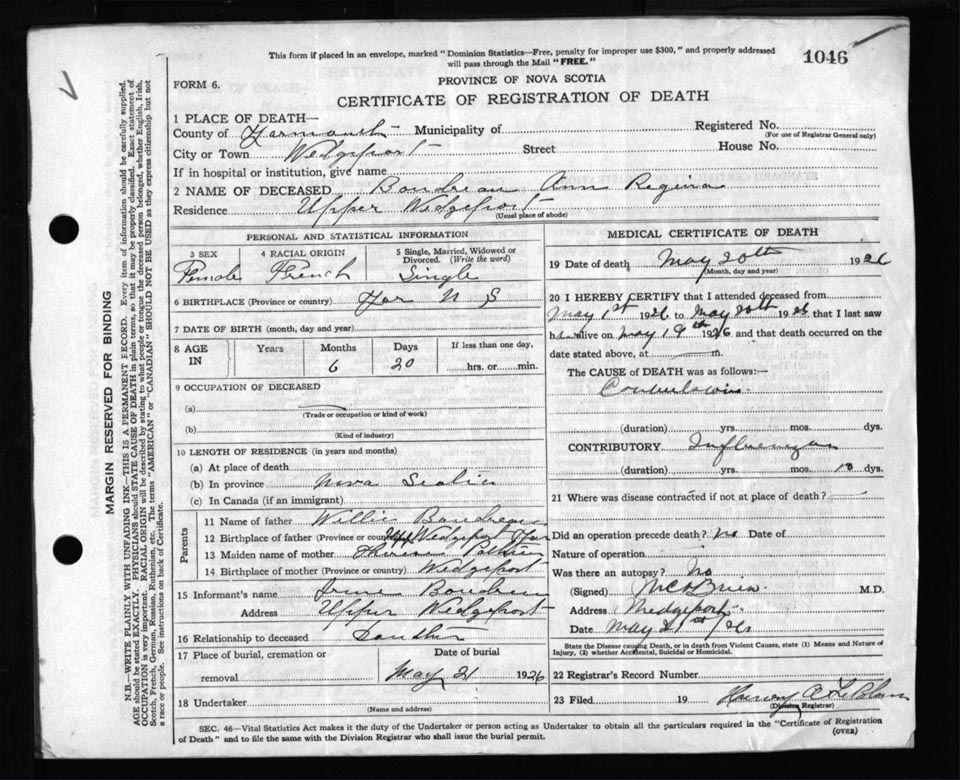 This form if placed in an envelope, marked "Dominion Statistics—Free, penalty for improper use $300," and properly addressed
will pass through the Mail "FREE."
1046
FORM 6.
PROVINCE OF NOVA SCOTIA
CERTIFICATE OF REGISTRATION OF DEATH
1 PLACE OF DEATH—
County of Yarmouth Municipality of Registered No.
(For use of Registrar General only)
City or Town Wedgeport Street House No.
If in hospital or institution, give name
2 NAME OF DECEASED Boudreau Ann Regina
Residence Upper Wedgeport
(Usual place of abode)
PERSONAL AND STATISTICAL INFORMATION
3 SEX 4 RACIAL ORIGIN 5 Single, Married, Widowed or
Divorced. (Write the word)
Female French Single
6 BIRTHPLACE (Province or country) Yar N S
7 DATE OF BIRTH (month, day and year)
8 AGE IN Years Months Days If less than one day,
6 20 hrs. or min.
9 OCCUPATION OF DECEASED
(a)
(Trade or occupation or kind of work)
(b)
(Kind of industry)
10 LENGTH OF RESIDENCE (in years and months)
(a) At place of death
(b) In province Nova Scotia
(c) In Canada (if an immigrant)
Parents
11 Name of father Willie Boudreau
12 Birthplace of father (Province or country) Wedgeport Yar
13 Maiden name of mother
14 Birthplace of mother (Province or country) Wedgeport
15 Informant's name Irene Boudreau
Address Upper Wedgeport
16 Relationship to deceased
17 Place of burial, cremation or Date of burial
removal May 21 1926
18 Undertaker
(Name and address)
MEDICAL CERTIFICATE OF DEATH
19 Date of death May 20th 1926
(Month, day and year)
20 I HEREBY CERTIFY that I attended deceased from
May 1st 1926 to May 20th 1926 that I last saw
h alive on May 19th 1926 and that death occurred on
date stated above, at m.
The CAUSE of DEATH was as follows:—
Convulsions
(duration) yrs. mos. dys.
CONTRIBUTORY Influenza
(duration) yrs. mos. 10 dys.
21 Where was disease contracted if not at place of death?
Did an operation precede death? No Date of
Nature of operation
Was there an autopsy? No
(Signed) M.D.
Address Wedgeport
Date May 21st/26
State the Disease causing Death, or in death from Violent Causes, state (1) Means and Nature of
Injury, (2) whether Accidental, Suicidal or Homicidal.
22 Registrar's Record Number
23 Filed 19
(Division Registrar)
SEC. 46—Vital Statistics Act makes it the duty of the Undertaker or person acting as Undertaker to obtain all the particulars required in the "Certificate of Registration
of Death" and to file the same with the Division Registrar who shall issue the burial permit.
(OVER)
MARGIN RESERVED FOR BINDING
N.B.—WRITE PLAINLY WITH UNFADING INK—THIS IS A PERMANENT RECORD. Every item of information should be carefully supplied.
AGE should be stated EXACTLY. PHYSICIANS should STATE CAUSE OF DEATH in plain terms, so that it may be properly classified. Exact statement of
OCCUPATION is very important. RACIAL ORIGIN will be described by stating to what people or tongue the deceased person belonged, whether English, Irish,
Scotch, French, German, Russian, Ruthenian, etc. The terms "AMERICAN" or "CANADIAN" SHOULD NOT BE USED as they express citizenship but not
a race or people. See instructions on back of Certificate.